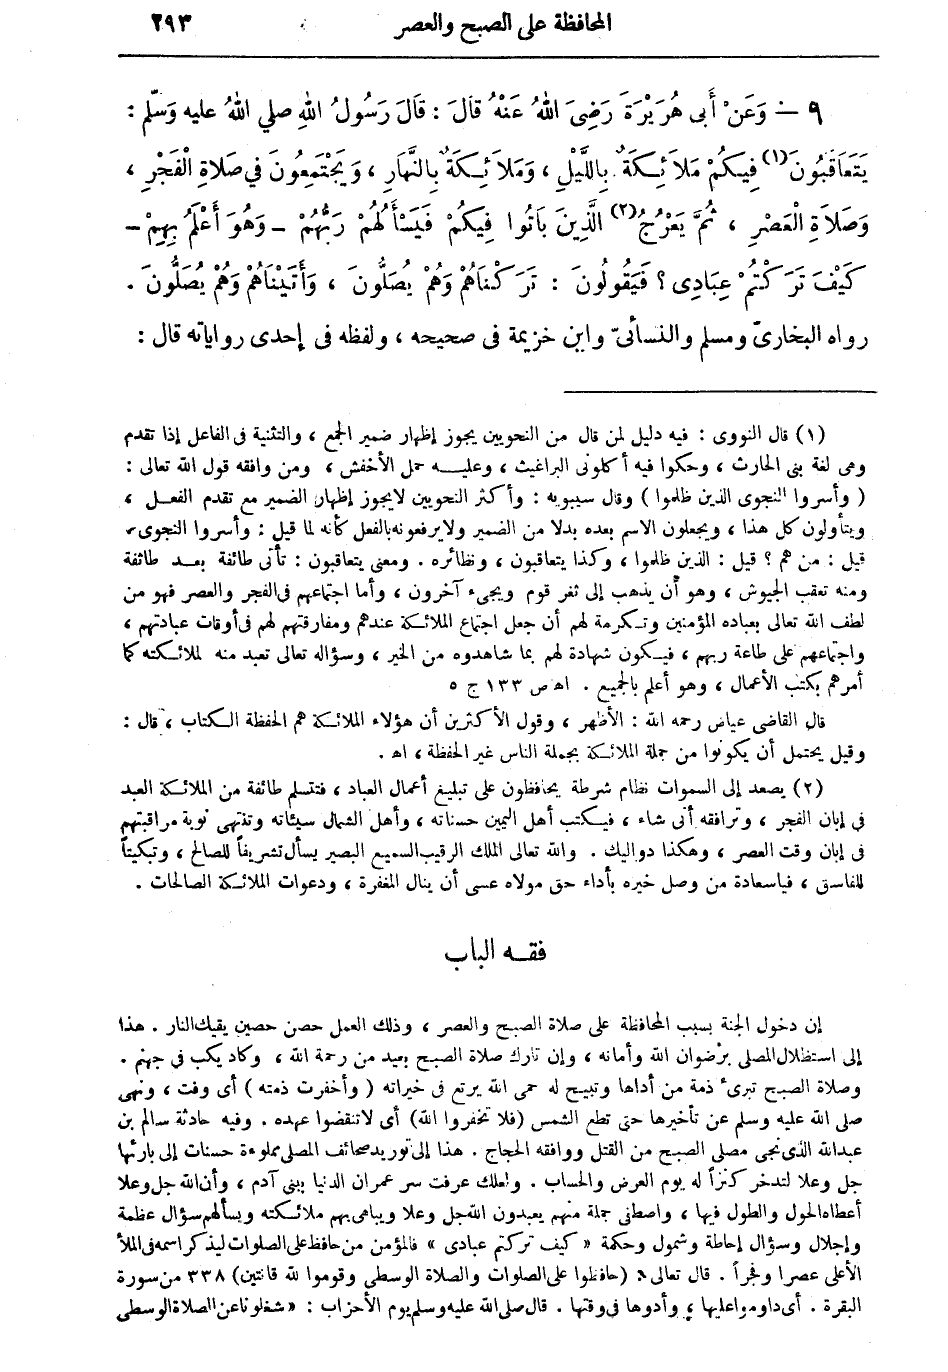 المحافظة على الصبح والعصر ٢٩٣
٩ — وَعَنْ أَبى هُرَيْرَةَ رَضِىَ اللهُ عَنْهُ قالَ : قالَ رَسُولُ اللهِ صلي اللهُ عليه وَسَلّم :
يَتَعَاقَبُونَ (١) فِيكُمْ مَلاَئِكَةٌ بِاللَّيْلِ ، وَمَلاَئِكَةٌ بِالنَّهَارِ ، وَيَجْتَمِعُونَ فِي صَلاَةِ الْفَجْرِ ،
وَصَلاَةِ الْعَصْرِ ، ثُمَّ يَعْرُجُ (٢) الَّذِينَ بَاتُوا فِيكُمْ فَيَسْأَلُهُمْ رَبُّهُمْ - وَهُوَ أَعْلَمُ بِهِمْ -
كَيْفَ تَرَكْتُمْ عِبَادِى ؟ فَيَقُولُونَ : تَرَكْنَاهُمْ وَهُمْ يُصَلُّونَ ، وَأَتَيْنَاهُمْ وَهُمْ يُصَلُّونَ .
رواه البخارىّ ومسلم والنسائىّ وابن خزيمة فى صحيحه ، ولفظه فى إحدى رواياته قال :
(١) قال النووى : فيه دليل لمن قال من النحويين يجوز إظهار ضمير الجمع ، والتثنية فى الفاعل إذا تقدم
وهى لغة بنى الحارث ، وحكوا فيه أكلونى البراغيث ، وعليه حمل الأخفش ، ومن وافقه قول الله تعالى :
( وأسروا النجوى الذين ظلموا ) وقال سيبويه : وأكثر النحويين لايجوز إظهار الضمير مع تقدم الفعل ،
ويتأولون كل هذا ، ويجعلون الاسم بعده بدلا من الضمير ولايرفعونه بالفعل كأنه لما قيل : وأسروا النجوى
قيل : من هم ؟ قيل : الذين ظلموا ، وكذا يتعاقبون ، ونظائره . ومعنى يتعاقبون : تأتى طائفة بعد طائفة
ومنه تعقب الجيوش ، وهو أن يذهب إلى ثغر قوم ويجىء آخرون ، وأما اجتماعهم فى الفجر والعصر فهو من
لطف الله تعالى بعباده المؤمنين وتكرمة لهم أن جعل اجتماع الملائكة عندهم ومفارقتهم لهم فى أوقات عبادتهم ،
واجتماعهم على طاعة ربهم ، فيكون شهادة لهم بما شاهدوه من الخير ، وسؤاله تعالى تعبد منه لملائكته كما
أمرهم بكتب الأعمال ، وهو أعلم بالجميع . اه ص ١٣٣ ج ٥
قال القاضى عياض رحمه الله : الأظهر ، وقول الأكثرين أن هؤلاء الملائكة هم الحفظة الكتاب ، قال :
وقيل يحتمل أن يكونوا من جملة الملائكة بجملة الناس غير الحفظة ، اه .
(٢) يصعد إلى السموات نظام شرطة يحافظون على تبليغ أعمال العباد ، فتتسلم طائفة من الملائكة العبد
فى إبان الفجر ، وترافقه أنى شاء ، فيكتب أهل اليمين حسناته ، وأهل الشمال سيئاته وتنتهى نوبة مراقبتهم
فى إبان وقت العصر ، وهكذا دواليك . والله تعالى الملك الرقيب السميع البصير يسأل تشريفاً للصالح ، وتبكيتاً
للفاسق ، فياسعادة من وصل خيره بأداء حق مولاه عسى أن ينال المغفرة ، ودعوات الملائكة الصالحات .
فقه الباب
إن دخول الجنة بسبب المحافظة على صلاة الصبح والعصر ، وذلك العمل حصن حصين يقيك النار . هذا
إلى استظلال المصلى برضوان الله وأمانه ، وإن تارك صلاة الصبح بعيد من رحمة الله ، وكاد يكب فى جهنم .
وصلاة الصبح تبرىء ذمة من أداها وتبيح له حمى الله يرتع فى خيراته ( وأخفرت ذمته ) أى وفت ، ونهى
صلى الله عليه وسلم عن تأخيرها حتى تطلع الشمس (فلا تخفروا الله) أى لاتنقضوا عهده . وفيه حادثة سالم بن
عبدالله الذى نجى مصلى الصبح من القتل ووافقه الحجاج . هذا إلى توريد صحائف المصلى مملوءة حسنات إلى بارئها
جل وعلا لتدخر كنزاً له يوم العرض والحساب . ولعلك عرفت سر عمران الدنيا ببنى آدم ، وأن الله جل وعلا
أعطاه الحول والطول فيها ، واصطفى جملة منهم يعبدون الله جل وعلا ويباهى بهم ملائكته ويسألهم سؤال عظمة
وإجلال وسؤال إحاطة وشمول وحكمة « كيف تركتم عبادى » فالمؤمن من حافظ على الصلوات ليذكر اسمه فى الملأ
الأعلى عصرا وفجراً . قال تعالى : (حافظوا على الصلوات والصلاة الوسطى وقوموا لله قانتين) ٣٣٨ من سورة
البقرة . أى داوموا عليها ، وأدوها فى وقتها . قال صلى الله عليه وسلم يوم الأحزاب : « شغلونا عن الصلاة الوسطى